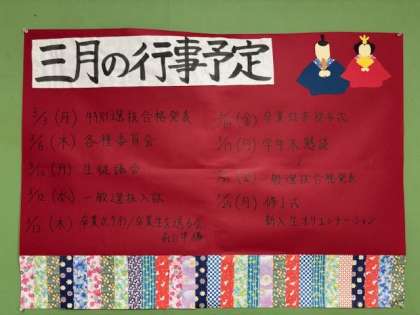 三月の行事予定
(月) 特別選抜合格発表
(木) 各種委員会
(月) 生徒議会
3/12 (水) 一般選抜入試
3/13 (木) 卒業式予行/卒業生を送る会
前日準備
(金) 卒業証書授与式
(月) 学年末懇談
一般選抜合格発表
(月) 修了式
新入生オリエンテーション